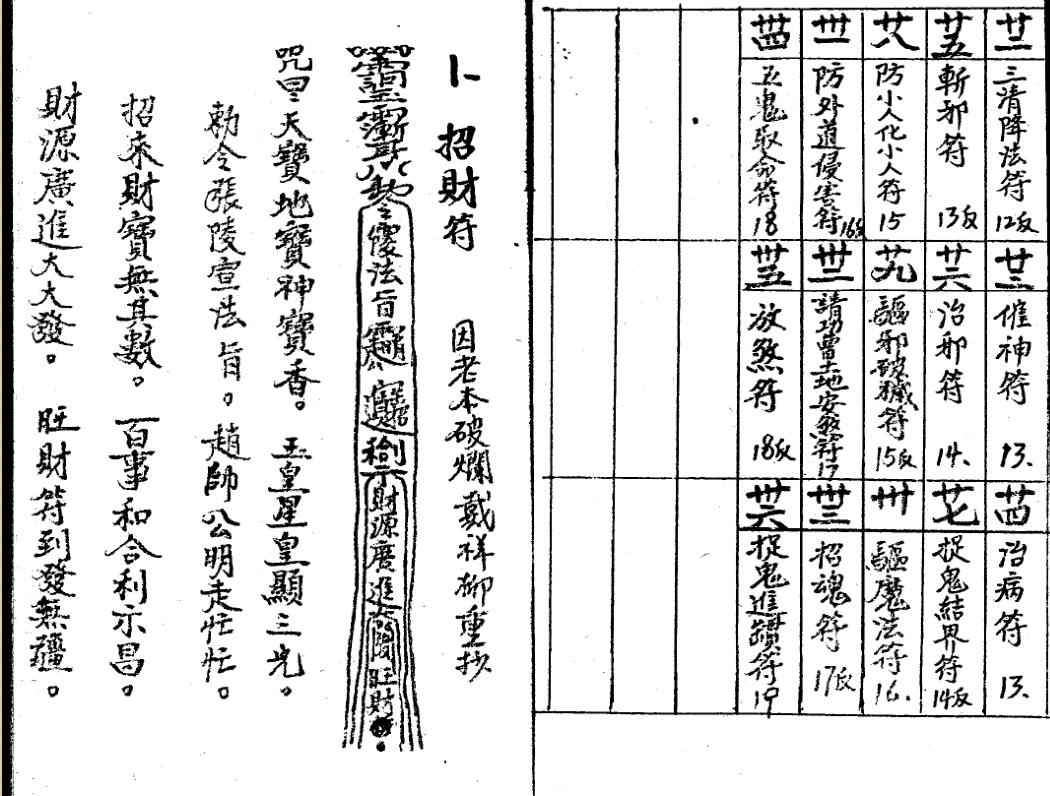 廿二
三清降法符 12反
廿三
催神符 13.
廿四
治病符 13.
廿五
斬邪符 13反
廿六
治邪符 14.
廿七
捉鬼結界符 14反
廿八
防小人化小人符 15
廿九
驅邪破穢符 15反
卅
驅魔法符 16.
卅一
防外道侵害符 16反
卅二
請功曹土地安煞符 17
卅三
招魂符 17反
卅四
五鬼取命符 18
卅五
放煞符 18反
卅六
捉鬼進罈符 19
卜 招財符 因老本破爛戴祥柳重抄
法旨
財源廣進
旺財
咒曰天寶地寶神寶香。玉皇星皇顯三光。
勅令張陵宣法旨。趙師公明走忙忙。
招來財寶無其數。百事和合利示昌。
財源廣進大大發。旺財符到發無疆。